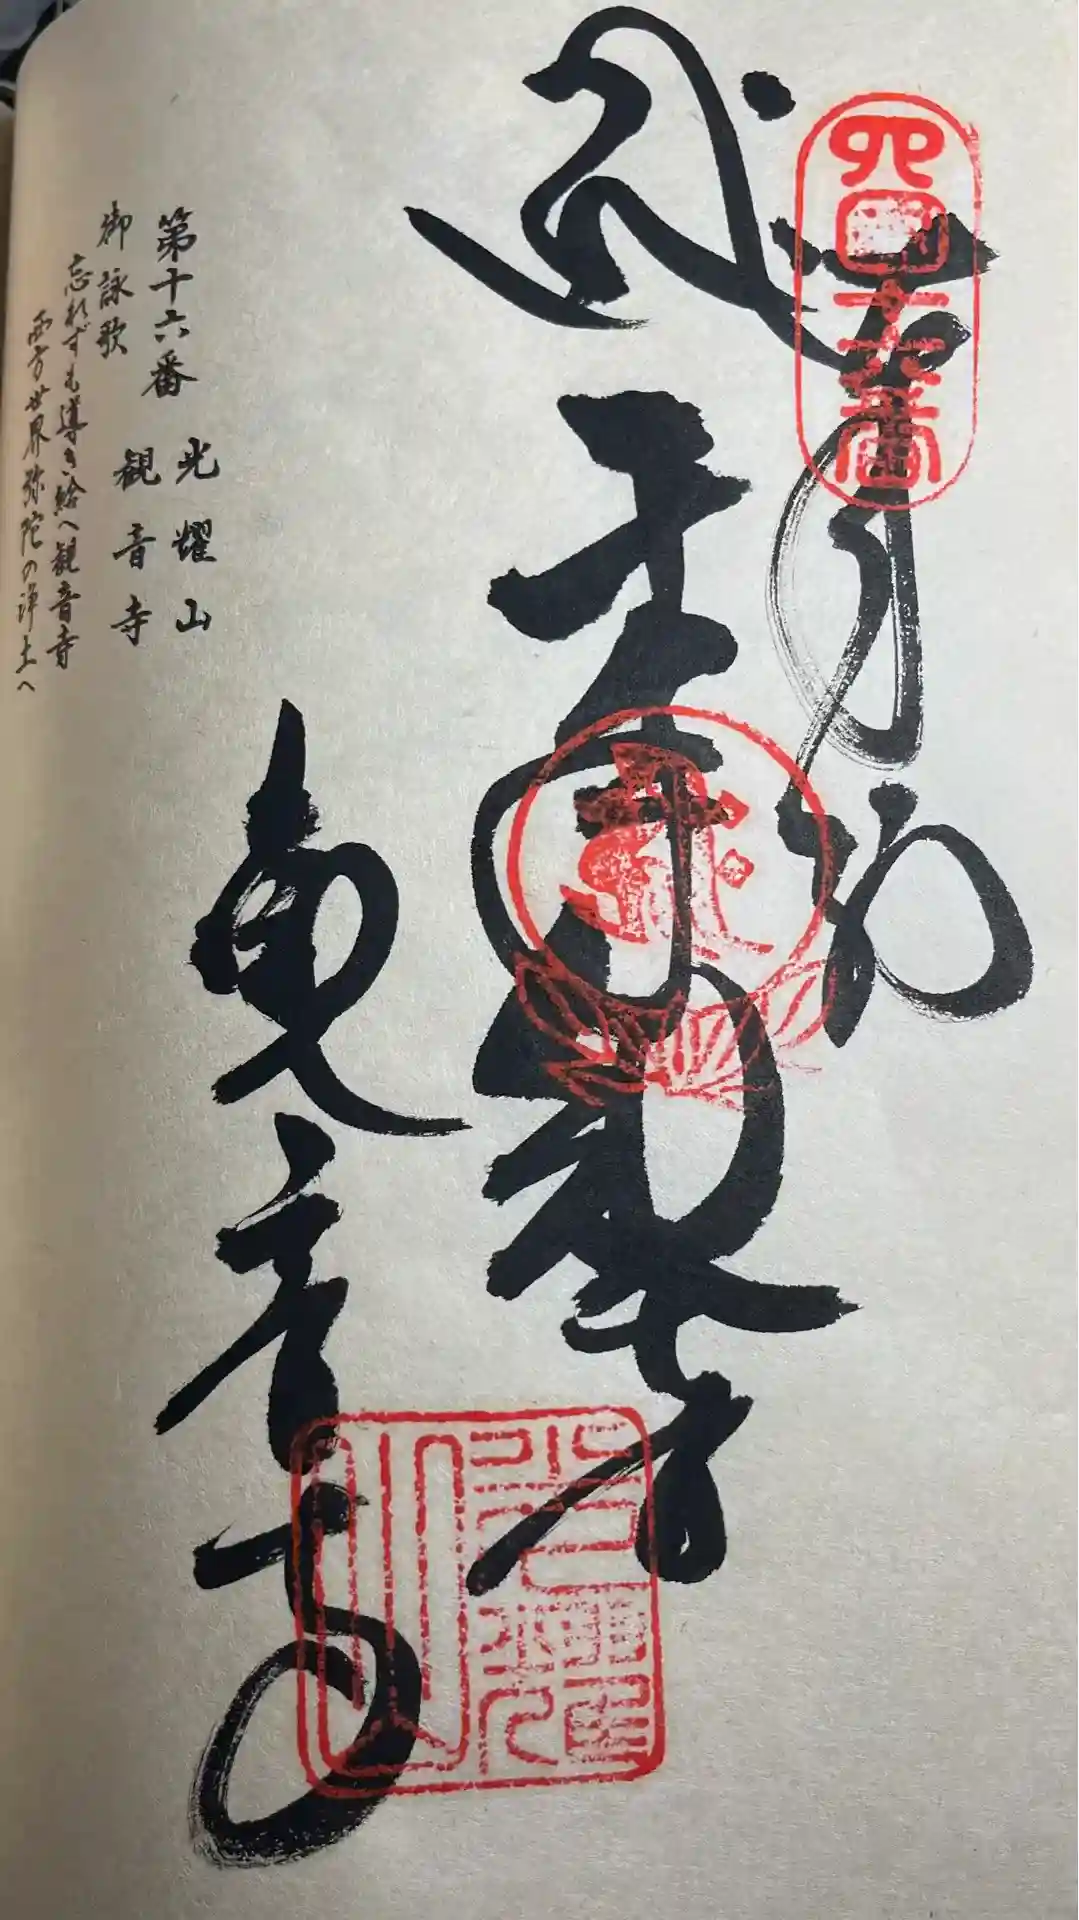 四国十六番
奉納
千手
観音寺
光耀山
第十六番 光耀山
観音寺
御詠歌
忘れずも導き給へ観音寺
西方世界弥陀の浄土へ